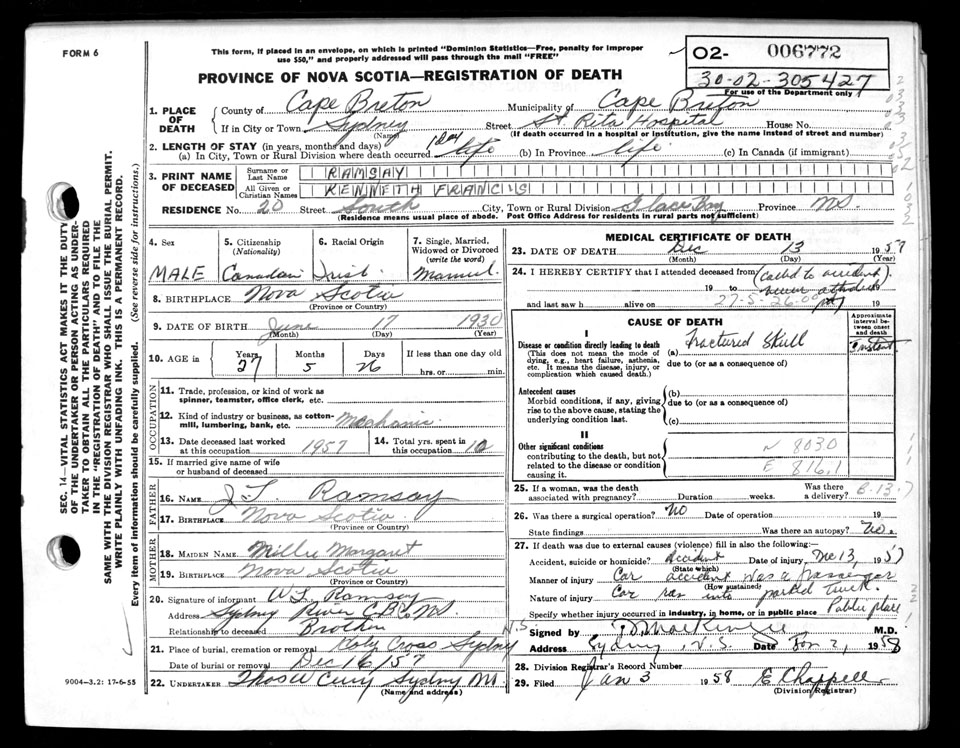 FORM 6
This form, if placed in an envelope, on which is printed "Dominion Statistics—Free, penalty for improper
use $50," and properly addressed will pass through the mail "FREE"
02- 006772
30-02-305427
For use of the Department only
PROVINCE OF NOVA SCOTIA—REGISTRATION OF DEATH
1. PLACE OF DEATH
County of Cape Breton Municipality of Cape Breton
If in City or Town Sydney (Name) Street St. Rita Hospital House No.
(If death occurred in a hospital or institution, give the name instead of street and number)
2. LENGTH OF STAY (in years, months and days)
(a) In City, Town or Rural Division where death occurred 1 day life (b) In Province life (c) In Canada (if immigrant)
3. PRINT NAME OF DECEASED
Surname or Last Name RAMSAY
All Given or Christian Names KENNETH FRANCIS
RESIDENCE No. 20 Street South City, Town or Rural Division Glace Bay Province NS.
(Residence means usual place of abode. Post Office Address for residents in rural parts not sufficient)
4. Sex
MALE
5. Citizenship (Nationality)
Canadian
6. Racial Origin
Irish
7. Single, Married, Widowed or Divorced (write the word)
8. BIRTHPLACE Nova Scotia
(Province or Country)
9. DATE OF BIRTH June 17 1930
(Month) (Day) (Year)
10. AGE in Years Months Days If less than one day old
27 5 26 hrs. or min.
OCCUPATION
11. Trade, profession, or kind of work as spinner, teamster, office clerk, etc.
12. Kind of industry or business, as cotten-mill, lumbering, bank, etc. Mechanic
13. Date deceased last worked at this occupation 1957
14. Total yrs. spent in this occupation 10
15. If married give name of wife or husband of deceased
FATHER
16. NAME J.L. Ramsay
17. BIRTHPLACE Nova Scotia
(Province or Country)
MOTHER
18. MAIDEN NAME Millie Margaret
19. BIRTHPLACE Nova Scotia
(Province or Country)
20. Signature of informant W.L. Ramsay
Address Sydney River C.B. NS.
Relationship to deceased Brother
21. Place of burial, cremation or removal Holy Cross Sydney N.S.
Date of burial or removal Dec 16/57
22. UNDERTAKER Thos W Curry Sydney NS
(Name and address)
MEDICAL CERTIFICATE OF DEATH
23. DATE OF DEATH Dec 13 1957
(Month) (Day) (Year)
24. I HEREBY CERTIFY that I attended deceased from (called to accident).
19 to never attended 19
and last saw h alive on 19
27-5-26-00
CAUSE OF DEATH
Approximate interval between onset and death
I
Disease or condition directly leading to death
(This does not mean the mode of dying, e.g., heart failure, asthenia, etc. It means the disease, injury, or complication which caused death.)
(a) Fractured Skull instant
due to (or as a consequence of)
Antecedent causes
Morbid conditions, if any, giving rise to the above cause, stating the underlying condition last.
(b)
due to (or as a consequence of)
(c)
II
Other significant conditions
contributing to the death, but not related to the disease or condition causing it.
N 8030
E 816.1
25. If a woman, was the death associated with pregnancy? Duration weeks. Was there a delivery?
26. Was there a surgical operation? No Date of operation 19
State findings Was there an autopsy? No.
27. If death was due to external causes (violence) fill in also the following:—
Accident, suicide or homicide? Accident Date of injury Dec 13, 1957
(State which)
Manner of injury Car accident was a passenger
(How sustained)
Nature of injury Car ran into parked truck.
Specify whether injury occurred in industry, in home, or in public place Public place
Signed by MacKenzie M.D.
Address Sydney, N.S. Date Jan 2, 1958
28. Division Registrar's Record Number
29. Filed Jan 3 1958 E Chappell
(Division Registrar)
SEC. 14—VITAL STATISTICS ACT MAKES IT THE DUTY
OF THE UNDERTAKER OR PERSON ACTING AS UNDER-
TAKER TO OBTAIN ALL THE PARTICULARS REQUIRED
IN THE "REGISTRATION OF DEATH" AND TO FILE THE
SAME WITH THE DIVISION REGISTRAR WHO SHALL ISSUE THE BURIAL PERMIT.
WRITE PLAINLY WITH UNFADING INK. THIS IS A PERMANENT RECORD.
Every item of information should be carefully supplied. (See reverse side for instructions.)
9004-3.2: 17-6-55